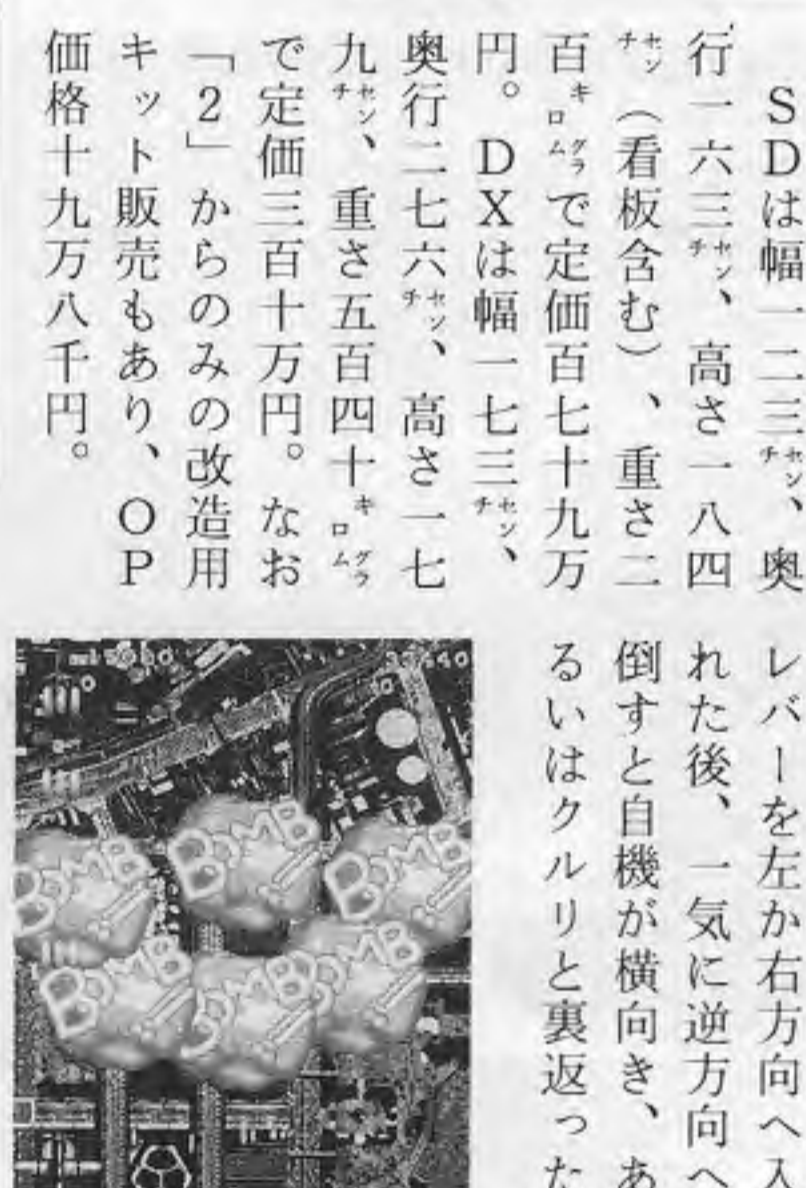 SDは幅一二三センチ、奥
行一六三センチ、高さ一八四
センチ（看板含む）、重さ二
百キログラムで定価百七十九万
円。DXは幅一七三センチ、
奥行二七六センチ、高さ一七
九センチ、重さ五百四十キログラム
で定価三百十万円。なお
「2」からのみの改造用
キット販売もあり、OP
価格十九万八千円。
レバーを左か右方向へ入
れた後、一気に逆方向へ
倒すと自機が横向き、あ
るいはクルリと裏返った
BOMB!!
BOMB!!
BOMB!!
BOMB!!
BOMB!!
BOMB!!